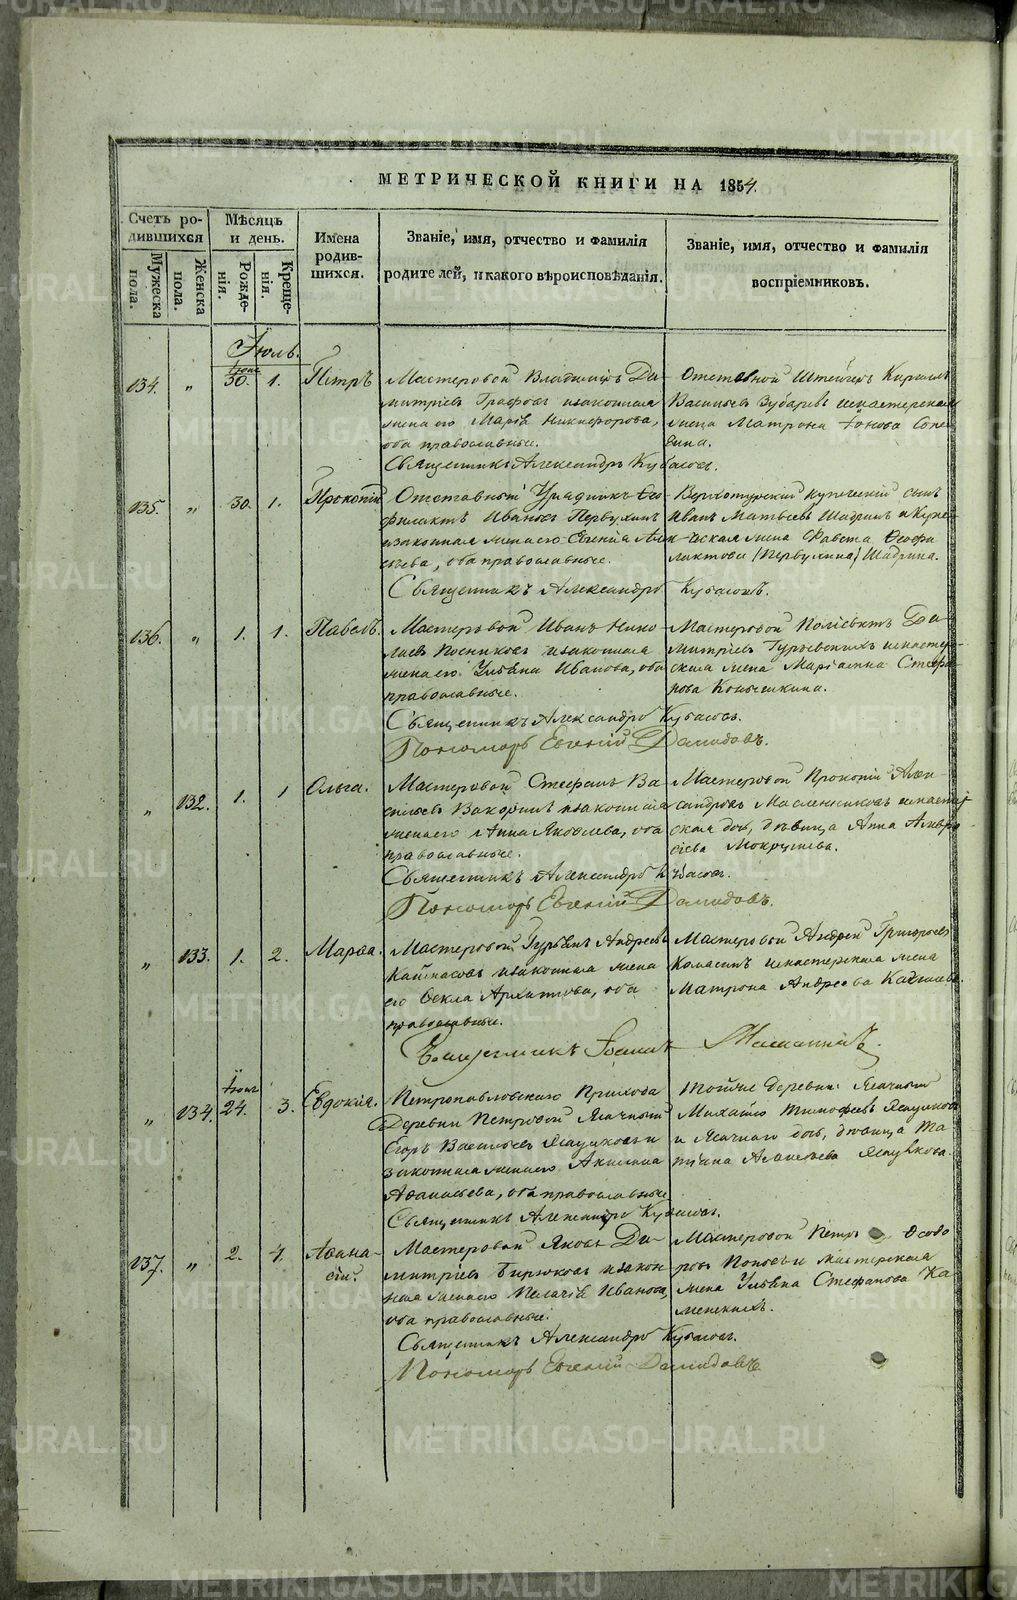 МЕТРИЧЕСКОЙ КНИГИ НА 1854.
Счетъ ро-
дившихся
Мужеска
пола.
Женска
пола.
Мѣсяцъ
и день.
Рожде-
нія.
Креще-
нія.
Имена
родив-
шихся.
Званіе, имя, отчество и фамилія
родителей, и какого вѣроисповѣданія.
Званіе, имя, отчество и фамилія
воспріемниковъ.
Іюль.
134. „ Іюня 30. 1. Петръ
Мастеровой Владиміръ Ди-
митріевъ и законная
жена его Марія Никифорова,
оба православные.
Священникъ Александръ Кубасовъ.
Отставной Штейгеръ Кириллъ
Васильевъ Зубаревъ и мастерская
жена Матрона Іонова
135. „ 30. 1. Прокопій
Отставный Урядникъ Ѳео-
филактъ Ивановъ Первухинъ
и законная жена его Евгенія Але-
ева, оба православные.
Священникъ Александръ Кубасовъ.
Верхотурскій купеческій сынъ
Иванъ Матвѣевъ Шадринъ и Купе-
ческая жена Фавста Ѳеофи
лактова (Первухина) Шадрина.
136. „ 1. 1. Павелъ.
Мастеровой Иванъ Нико-
лаевъ Посниковъ и законная
жена его Ульяна Иванова, оба
православные.
Священникъ Александръ Кубасовъ.
Пономарь Евгений Демидовъ.
Мастеровой Поліевктъ Ди-
митріевъ и мастер-
ская жена Маріамна Стефа-
нова
„ 132. 1. 1 Ольга.
Мастеровой Стефанъ Ва-
сильевъ и законная
жена его Анна Яковлева, оба
православные.
Священникъ Александръ Кубасовъ.
Пономарь Евгений Демидовъ.
Мастеровой Прокопій Алек-
сандровъ Масленниковъ и мастер
ская дочь, дѣвица Анна Амвро
сіева Мокрушева.
„ 133. 1. 2. Марѳа.
Мастеровой Гурьянъ Андреевъ
и законная жена
его Ѳекла Архипова, оба
православные.
Священникъ Іоаннъ
Мастеровой Андрей Григорьевъ
и мастерская жена
Матрона Андреева
„ 134. Іюня 24. 3. Евдокія.
Петропавловскаго Прихода
Деревни Петровой Ясачный
Егоръ Васильевъ и
законная жена его Акилина
Аѳанасьева, оба православные
Священникъ Александръ Кубасовъ.
Тойже деревни Ясачный
Михайло Тимофеевъ
и Ясачнаго дочь, дѣвица Та-
тіана
137. „ 2. 4. Аѳана-
сій.
Мастеровой Яковъ Ди-
митріевъ Бирюковъ и закон-
ная жена его Пелагія Иванова,
оба православные.
Священникъ Александръ Кубасовъ.
Пономарь Евгений Демидовъ
Мастеровой Петръ Ѳеодо
ровъ Поповъ и мастерская
жена Ульяна Стефанова Ка
менскихъ.
METRIKI.GASO-URAL.RU